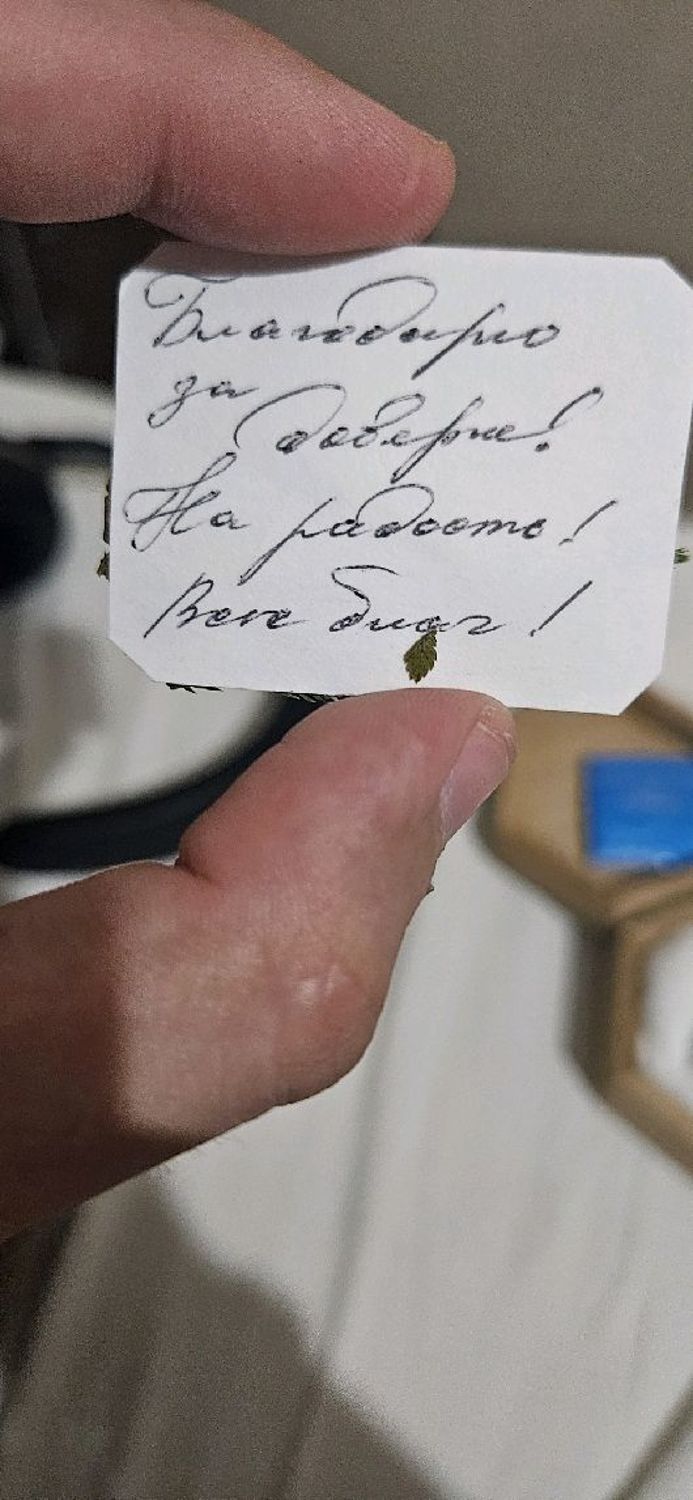 Благодарю
за
доверие!
На радость!
Всех благ!